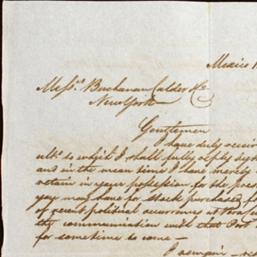 Mexico 1
Mess.rs Buchanan Calder & Co
New York
Gentlemen
I have duly receiv
ulto to wh'ch I shall fully reply by th
and in the mean time I have merely
retain in your possession for the pres
you may have for stock purchased f
of recent political occurrences at
the communication with that Port
for some time to come –
I remain